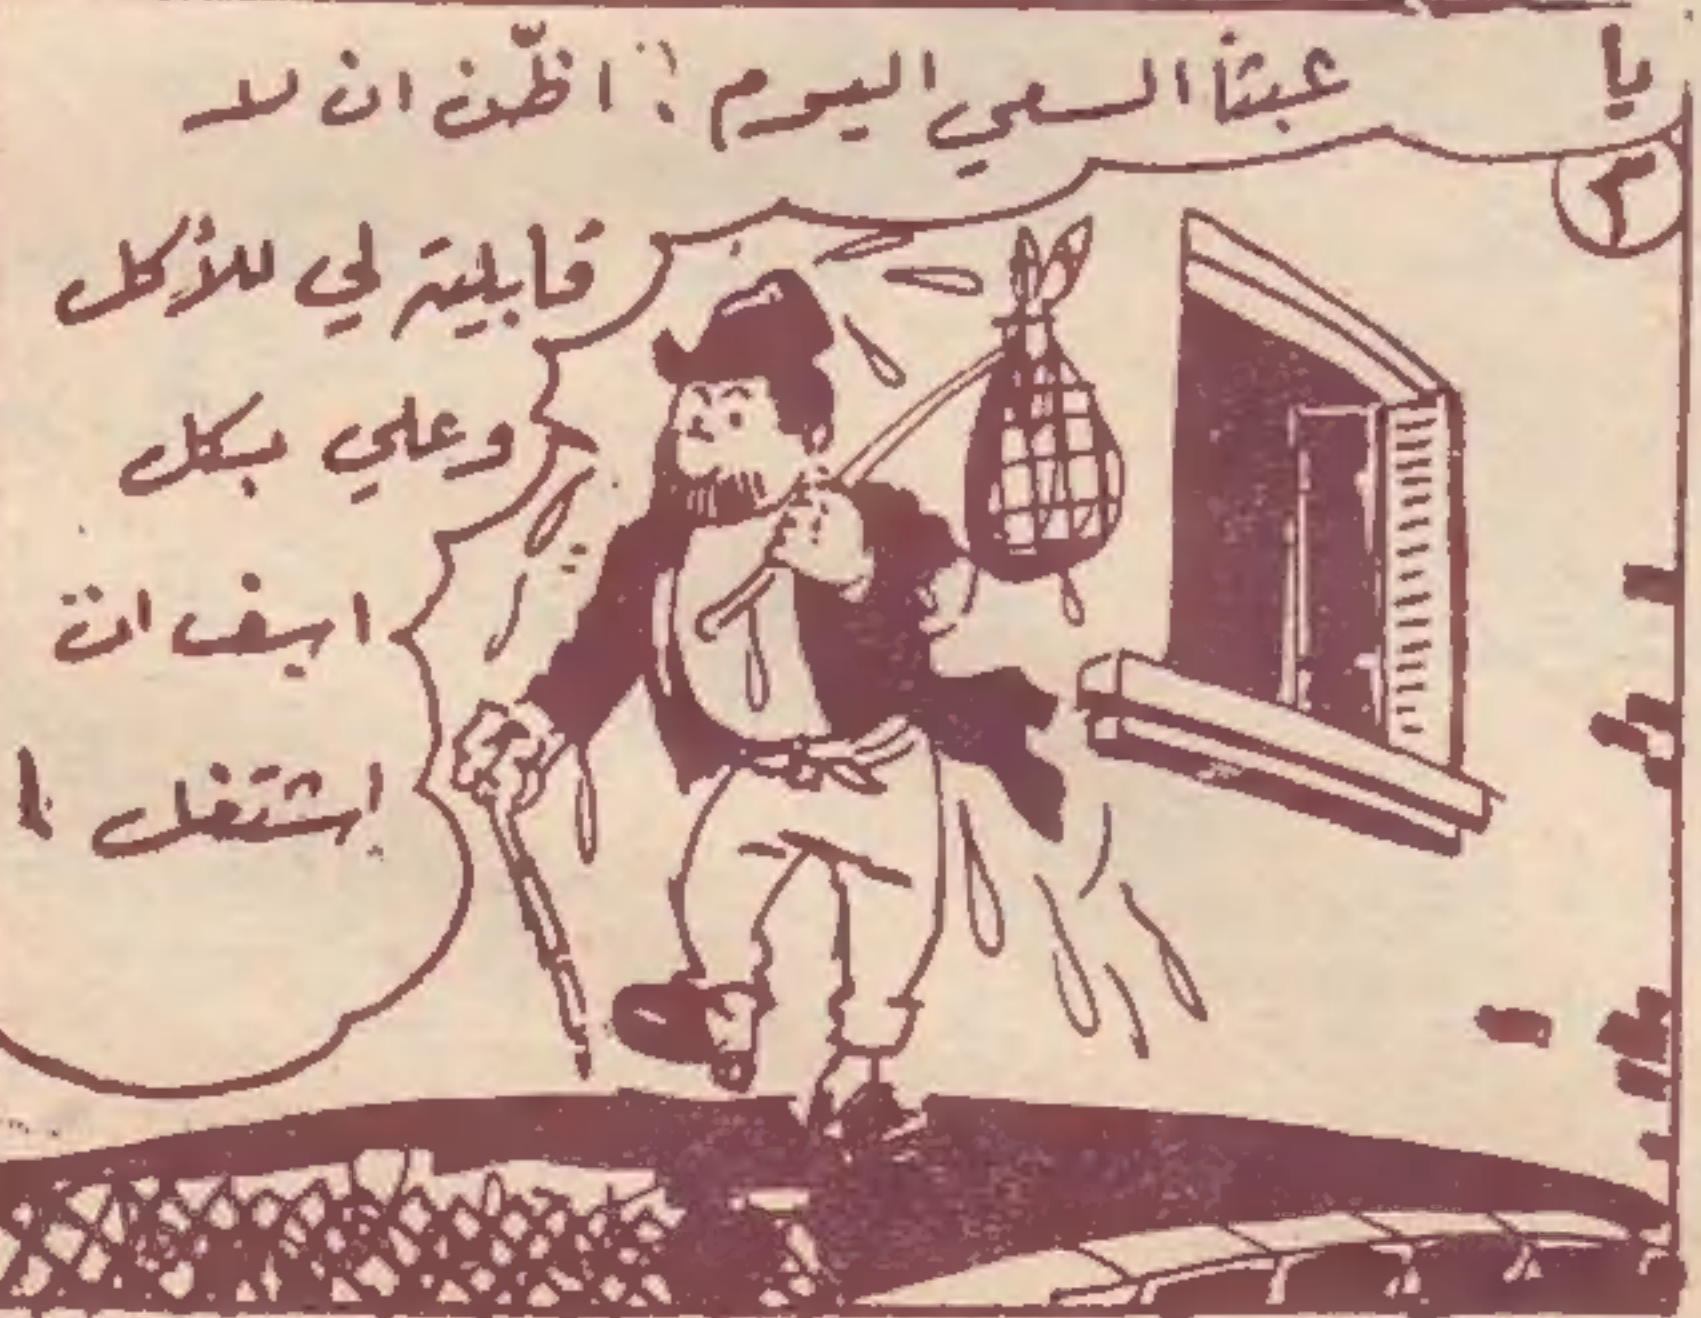 يا عبثاً السعي اليوم! اظّن ان لا
قابلية لي للأكل
وعلي بكل
اسف ان
اشتغل!
٣